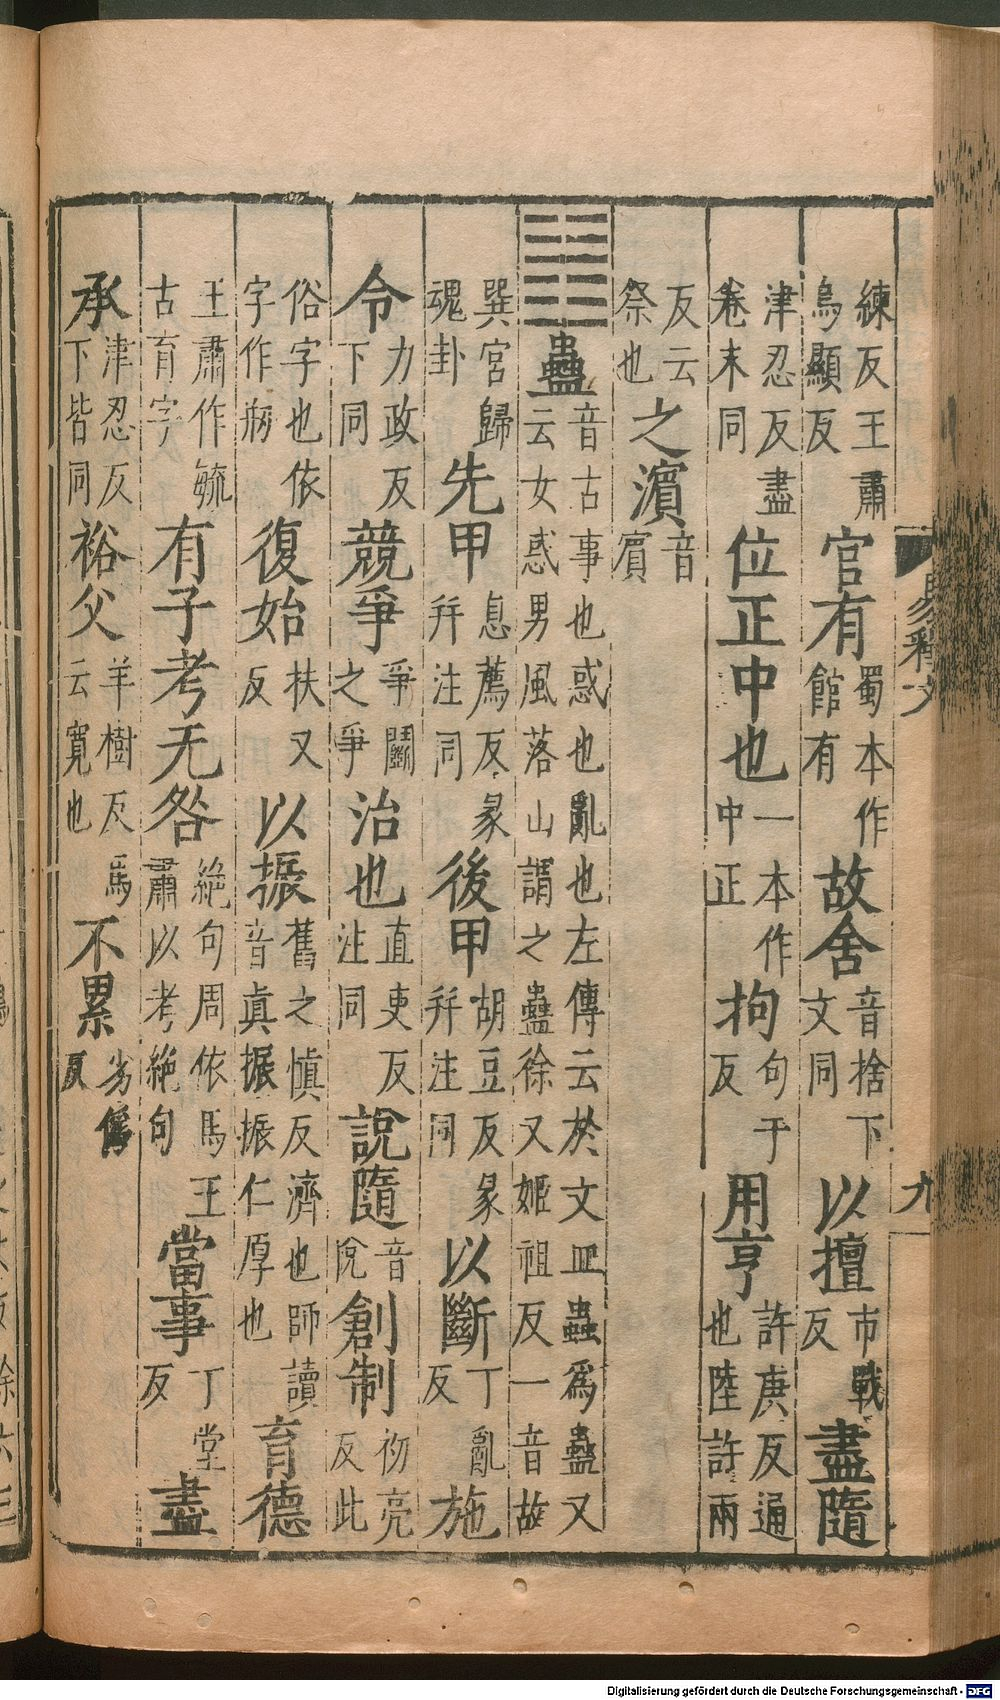 練反王肅烏顯反官有蜀本作館有故舍音捨下文同以擅市戰反盡隨
津忍反盡卷末同位正中也一本作中正拘句于反用亨許庚反通也陸許兩
反云祭也之濱音賔
䷑蠱音古事也惑也亂也左傳云於文皿蟲爲蠱又云女惑男風落山謂之蠱徐又姬祖反一音故
巽宮歸魂卦先甲息薦反彖幷注同後甲胡豆反彖幷注同以斷丁亂反施
令力政反下同競爭爭鬬之爭治也直吏反注同說隨音悅創制初亮反此
俗字也依字作復始扶又反以振舊之愼反濟也師讀音眞振振仁厚也育德
王肅作毓古育字有子考无咎絕句周依馬王肅以考絕句當事丁堂反盡
承津忍反下皆同裕父羊樹反馬云寬也不累劣僞反
易釋文
九
Digitalisierung gefördert durch die Deutsche Forschungsgemeinschaft - DFG